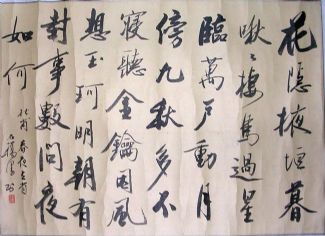 花隱掖垣暮
啾々棲鳥過星
臨萬戶動月
傍九秋多不
寢聽金鑰因風
想玉珂明朝有
封事數問夜
如何
杜甫春夜左省